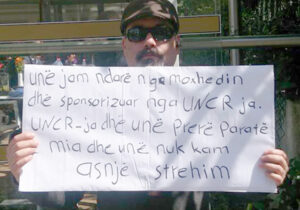 unë jam ndarë nga moxhedin
dhe sponsorizuar nga UNCR ja.
UNCR-ja dhe unë Prerë Paratë
mia dhe unë nuk kam
asnjë strehim